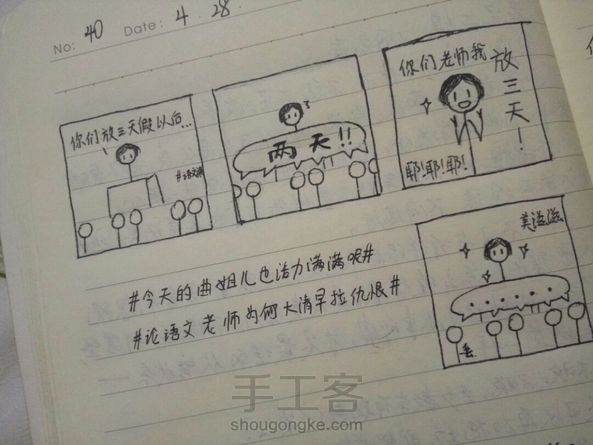 No: 40 Date: 4 . 28 .
你们放三天假以后...
#语文课
?
两天!!
你们老师我
放三天!
耶!耶!耶!
美滋滋
......
#今天的曲姐儿也活力满满呢#
#论语文老师为何大清早拉仇恨#
手工客
shougongke.com